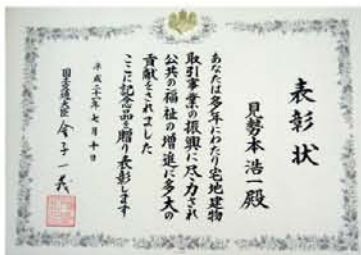 表彰状
見勢本浩一殿
あなたは多年にわたり宅地建物
取引事業の振興に尽力され
公共の福祉の増進に多大の
貢献をされました
ここに記念品を贈り表彰します
平成二十一年七月十日
国土交通大臣 金子一義